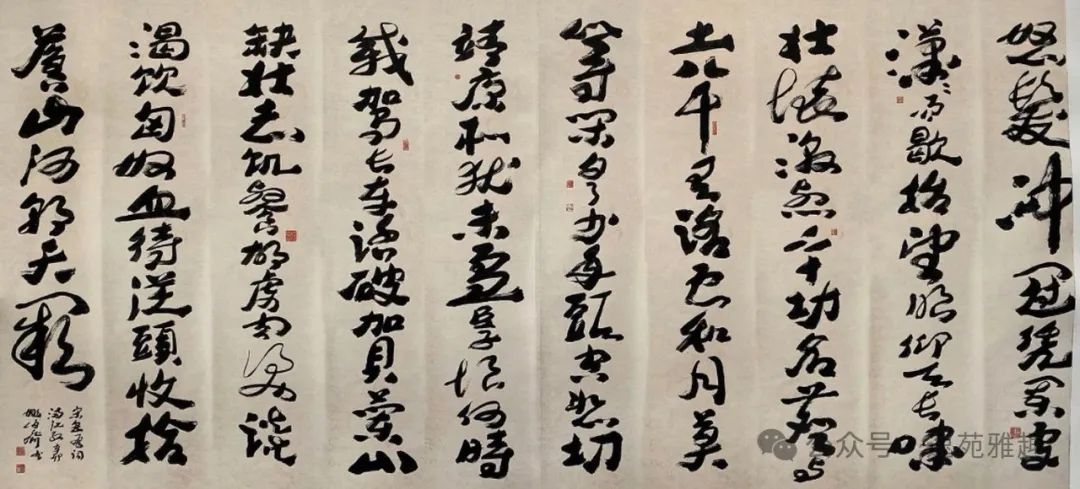 怒髮冲冠凭阑處
潇潇雨歇抬望眼仰天长啸
壮懷激烈三十功名尘与
土八千里路云和月莫
等闲白了少年頭空悲切
靖康耻犹未雪臣子恨何時
滅駕长车踏破賀蘭山
缺壮志飢餐胡虏肉笑談
渴饮匈奴血待従頭收拾
舊山河朝天阙
宋岳飛词
满江红
公众号 苑雅趣